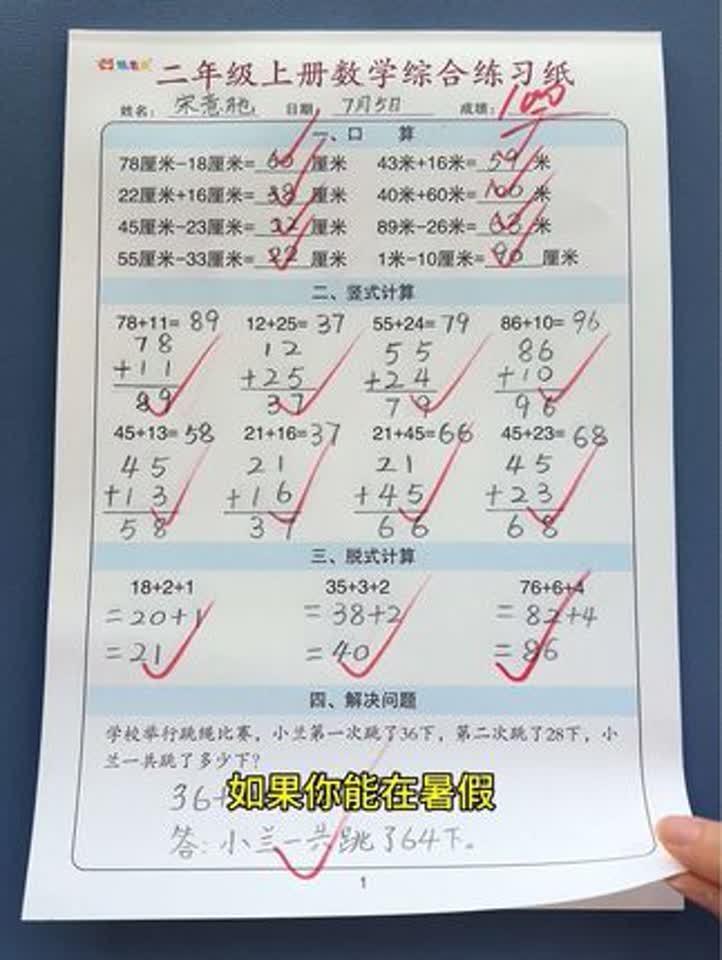 二年级上册数学综合练习纸
姓名: 日期: 7月5日 成绩: 100
一、口 算
78厘米-18厘米=60厘米 43米+16米=59米
22厘米+16厘米=38厘米 40米+60米=100米
45厘米-23厘米=22厘米 89米-26米=63米
55厘米-33厘米=22厘米 1米-10厘米=90厘米
二、竖式计算
78+11=89 12+25=37 55+24=79 86+10=96
78 12 55 86
+11 +25 +24 +10
89 37 79 96
45+13=58 21+16=37 21+45=66 45+23=68
45 21 21 45
+13 +16 +45 +23
58 37 66 68
三、脱式计算
18+2+1 35+3+2 76+6+4
=20+1 =38+2 =82+4
=21 =40 =86
四、解决问题
学校举行跳绳比赛，小兰第一次跳了36下，第二次跳了28下，小
兰一共跳了多少下?
36+
如果你能在暑假
答:小兰一共跳了64下。
1